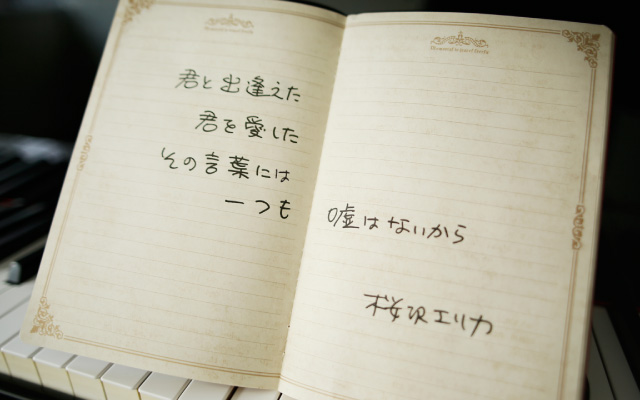 君と出逢えた
君を愛した
その言葉には
一つも
嘘はないから
桜沢エリカ